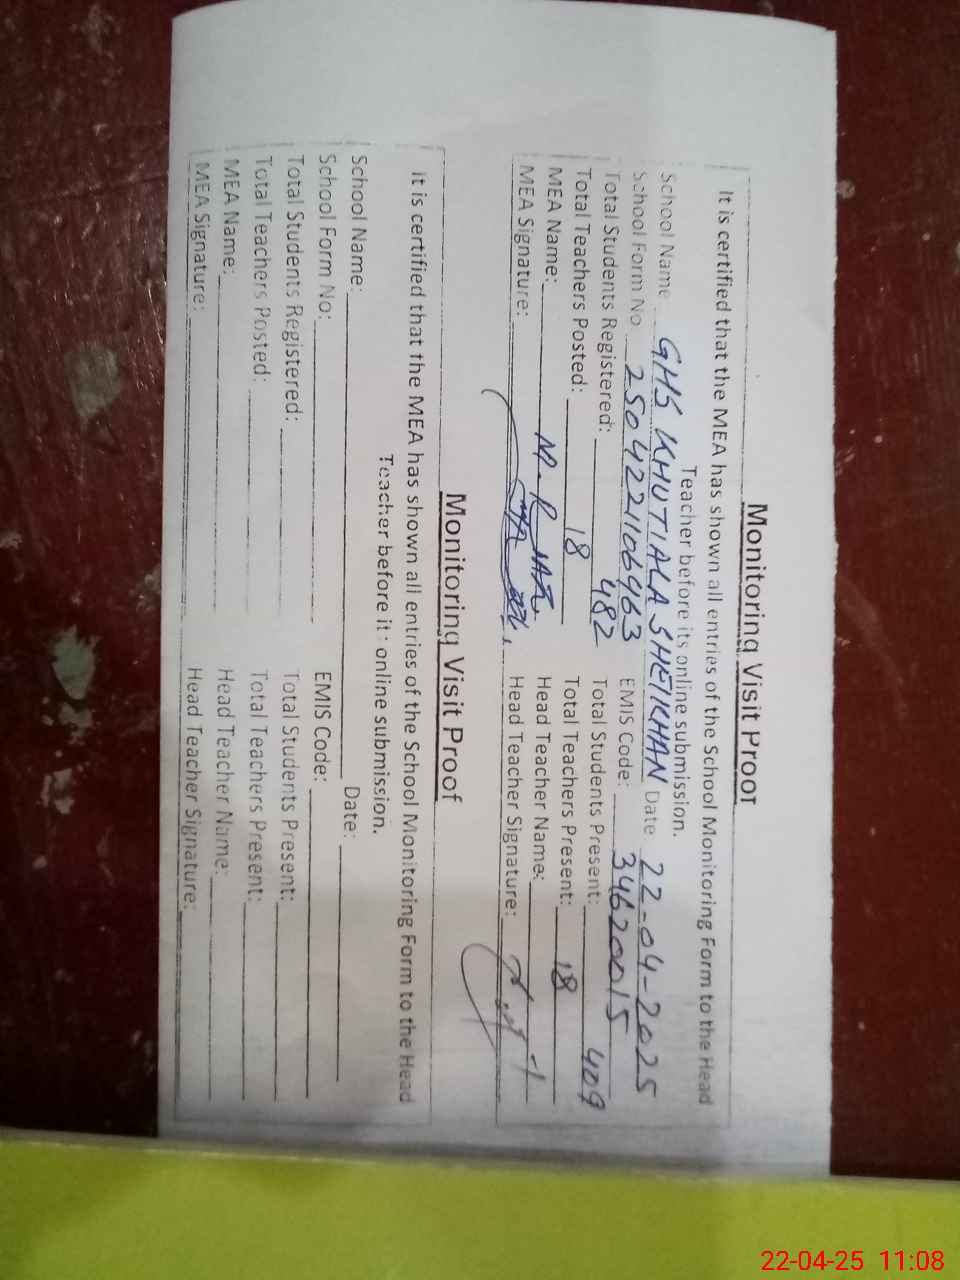 Monitoring Visit Proof
It is certified that the MEA has shown all entries of the School Monitoring Form to the Head
Teacher before its online submission.
School Name GHS KHUTIALA SHEIKHAN Date 22-04-2025
School Form No. 2504221106463 EMIS Code: 34620015
Total Students Registered: 482 Total Students Present: 409
Total Teachers Posted: 18 Total Teachers Present: 18
MEA Name: M. Head Teacher Name:
MEA Signature: Head Teacher Signature:
Monitoring Visit Proof
It is certified that the MEA has shown all entries of the School Monitoring Form to the Head
Teacher before it online submission.
School Name: Date:
School Form No: EMIS Code:
Total Students Registered: Total Students Present:
Total Teachers Posted: Total Teachers Present:
MEA Name: Head Teacher Name:
MEA Signature: Head Teacher Signature:
22-04-25 11:08